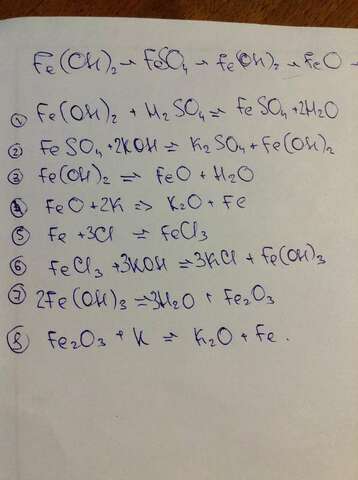 Fe(OH)₂ → FeSO₄ → Fe(OH)₂ → FeO →
① Fe(OH)₂ + H₂SO₄ = FeSO₄ + 2H₂O
② FeSO₄ + 2KOH = K₂SO₄ + Fe(OH)₂
③ Fe(OH)₂ = FeO + H₂O
④ FeO + 2K => K₂O + Fe
⑤ Fe + 3Cl = FeCl₃
⑥ FeCl₃ + 3KOH = 3KCl + Fe(OH)₃
⑦ 2Fe(OH)₃ = 3H₂O + Fe₂O₃
⑧ Fe₂O₃ + K = K₂O + Fe.